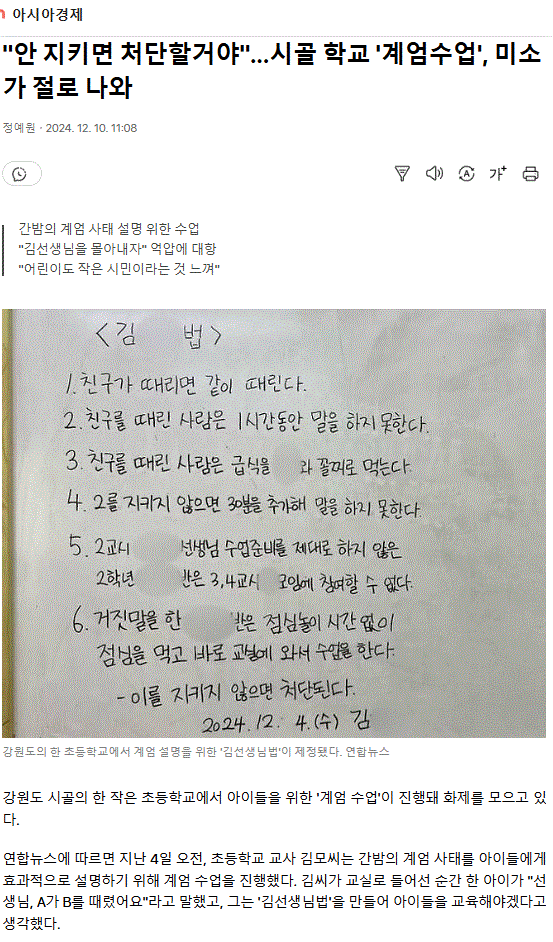 아시아경제
"안 지키면 처단할거야"…시골 학교 '계엄수업', 미소
가 절로 나와
정예원 · 2024. 12. 10. 11:08
가+
간밤의 계엄 사태 설명 위한 수업
"김선생님을 몰아내자" 억압에 대항
"어린이도 작은 시민이라는 것 느껴"
<김 법>
1. 친구가 때리면 같이 때린다.
2. 친구를 때린 사람은 1시간동안 말을 하지 못한다.
3. 친구를 때린 사람은 급식을 과 꼴찌로 먹는다.
4. 2를 지키지 않으면 30분을 추가해 말을 하지 못한다.
5. 2교시 선생님 수업준비를 제대로 하지 않은
2학년 반은 3,4교시 모임에 참여할 수 없다.
6. 거짓말을 한 반은 점심놀이 시간 없이
점심을 먹고 바로 교실에 와서 수업을 한다.
- 이를 지키지 않으면 처단된다.
2024. 12. 4. (수) 김
강원도의 한 초등학교에서 계엄 설명을 위한 '김선생님법'이 제정됐다. 연합뉴스
강원도 시골의 한 작은 초등학교에서 아이들을 위한 '계엄 수업'이 진행돼 화제를 모으고 있
다.
연합뉴스에 따르면 지난 4일 오전, 초등학교 교사 김모씨는 간밤의 계엄 사태를 아이들에게
효과적으로 설명하기 위해 계엄 수업을 진행했다. 김씨가 교실로 들어선 순간 한 아이가 "선
생님, A가 B를 때렸어요"라고 말했고, 그는 '김선생님법'을 만들어 아이들을 교육해야겠다고
생각했다.